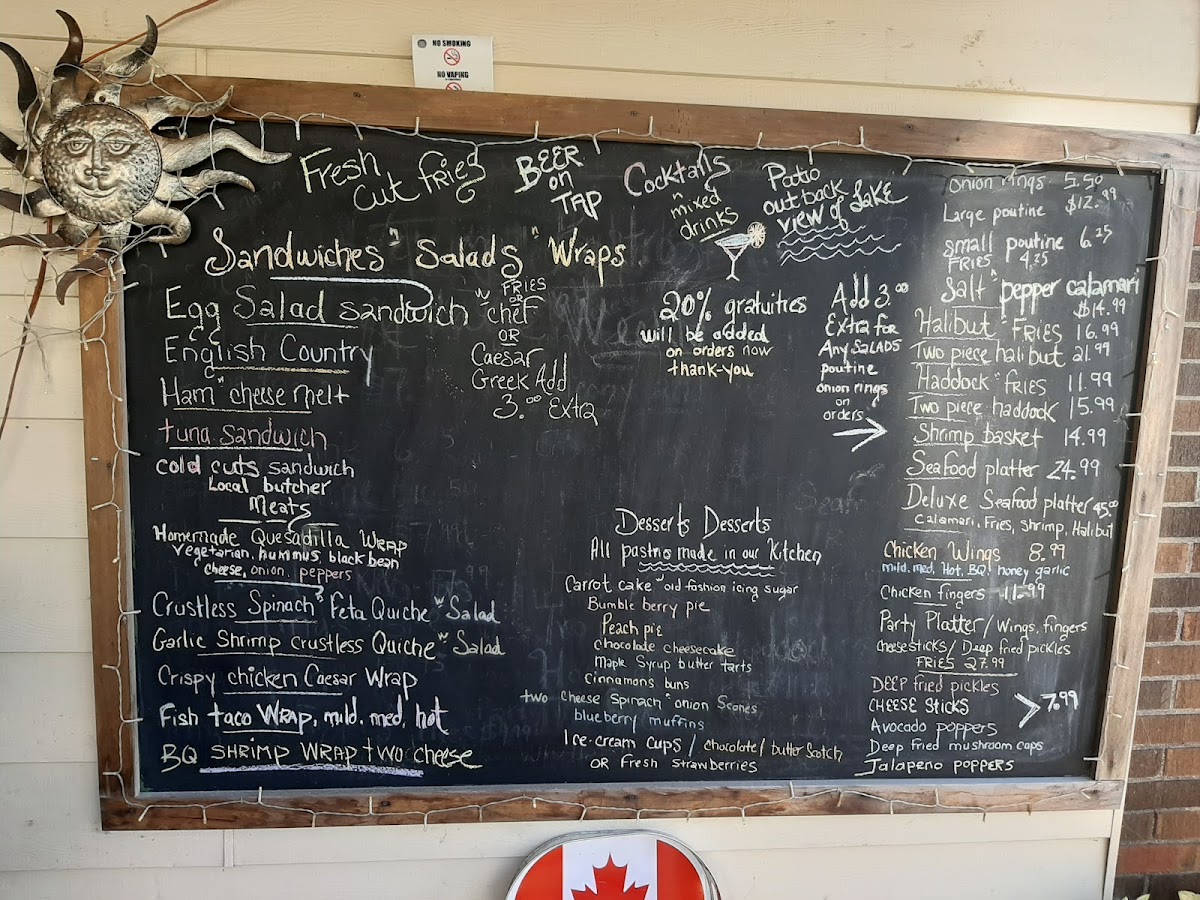 NO SMOKING
NO VAPING
Fresh
Cut Fries
BEER
on
TAP
Cocktails
"mixed
drinks
Patio
out back
view of Lake
Sandwiches " Salads " Wraps
Egg Salad sandwich
English Country
Ham "cheese melt
tuna sandwich
cold cuts sandwich
Local butcher
Meats
Homemade Quesadilla Wrap
Vegetarian, hummus, black bean
cheese, onion. peppers
Crustless Spinach " Feta Quiche "w Salad
Garlic Shrimp crustless Quiche "w Salad
Crispy chicken Caesar Wrap
Fish taco WRAP, mild, med, hot
BQ SHRIMP WRAP two cheese
"w FRIES
OR
chef
OR
Caesar
Greek Add
3.00 Extra
20% gratuities
will be added
on orders now
thank-you
Add 3.00
Extra for
Any SALADS
poutine
onion rings
on
orders
Desserts Desserts
All pastno made in our Kitchen
Carrot cake "old fashion icing sugar
Bumble berry pie
Peach pie
chocolade cheesecake
Maple Syrup butter tarts
cinnamons buns
two cheese Spinach "onion Scones
blueberry muffins
Ice-cream cups / chocolate / butter Scotch
OR Fresh strawberries
onion rings 5.50
Large poutine $12.99
small poutine 6.25
FRIES 4.25
Salt " pepper calamari
$14.99
Halibut " FRIES 16.99
Two piece halibut 21.99
Haddock " FRIES 11.99
Two piece haddock 15.99
Shrimp basket 14.99
Seafood platter 24.99
Deluxe Seafood platter 45.00
Calamari, Fries, shrimp, Halibut
Chicken Wings 8.99
mild, med, Hot, BQ, honey garlic
Chicken fingers 11.99
Party Platter / Wings, fingers
cheese sticks / Deep fried pickles
FRIES 27.99
DEEP fried pickles
CHEESE Sticks
7.99
Avocado poppers
Deep fried mushroom caps
Jalapeno poppers